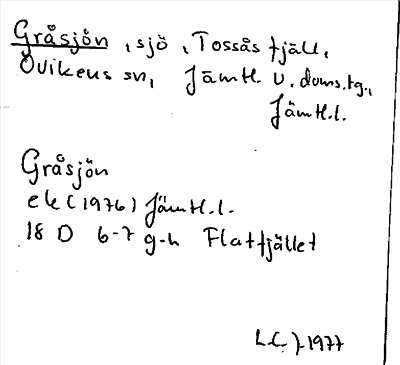 Gråsjön, sjö, Tossås fjäll,
Ovikens sn, Jämtl. v. doms.tg.,
Jämtl.l.
Gråsjön
ek (1976) Jämtl.l.
18 D 6-7 g-h Flatfjället
L.C.J. 1977